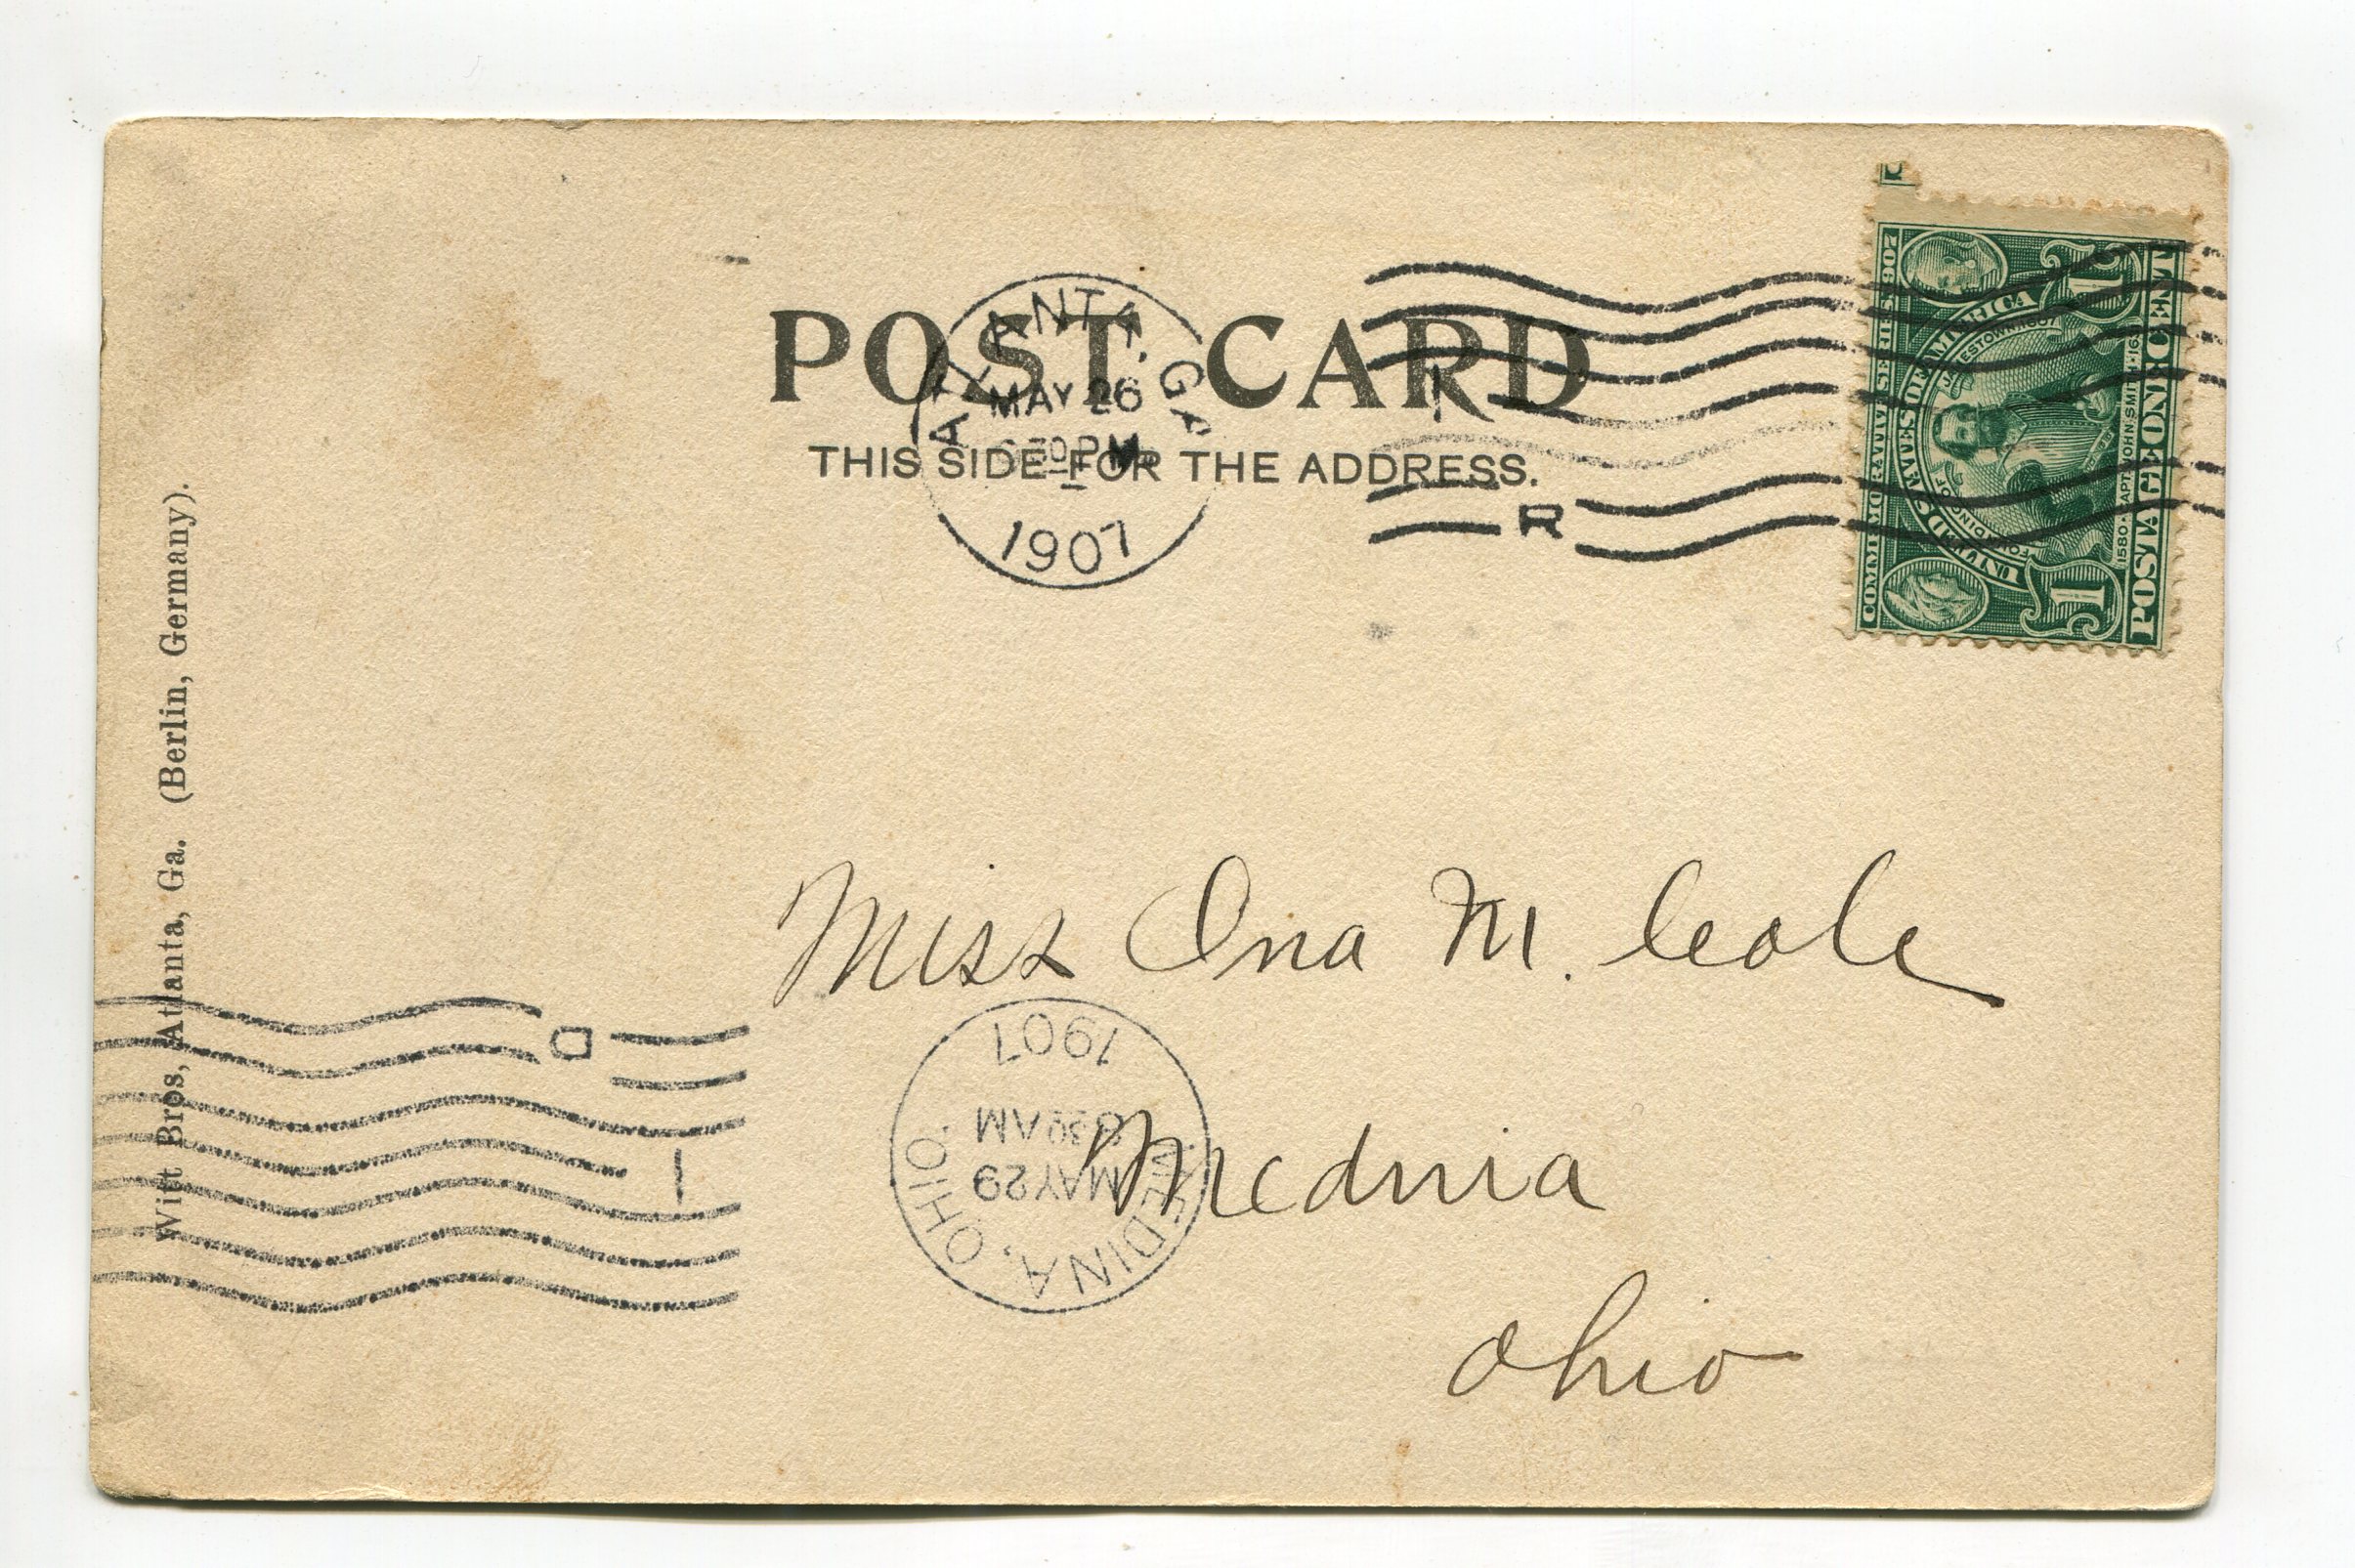 POST CARD
THIS SIDE FOR THE ADDRESS.
ATLANTA, GA
MAY 26
PM
1907
R
COMMEMORATIVE SERIES 1907
UNITED STATES OF AMERICA
FOUNDING OF JAMESTOWN 1607
1580 CAPT JOHN SMITH 1631
POSTAGE ONE CENT
1 1
Miss Ina M. Cole
Medina
Ohio
MEDINA, OHIO.
MAY 29
830 AM
1907
D
Witt Bros, Atlanta, Ga. (Berlin, Germany).